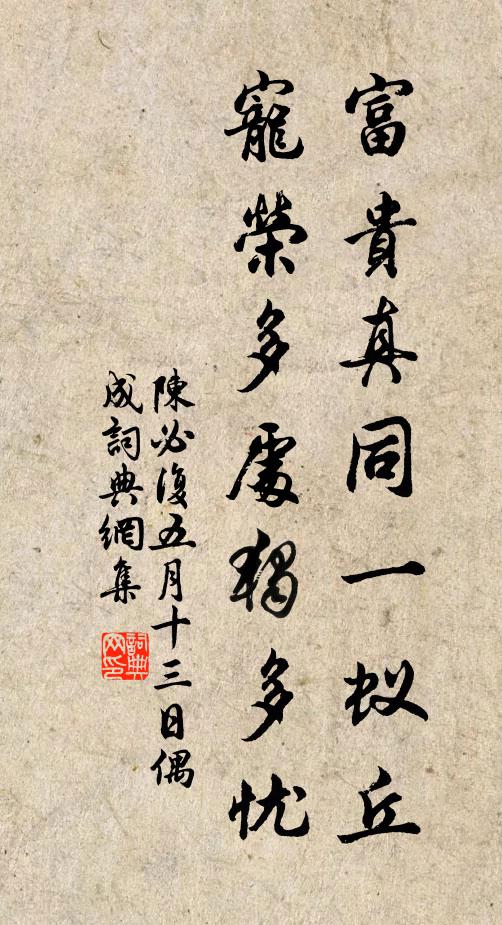 富貴真同一蚁丘
寵榮多處獨多忧
陳必復五月十三日偶
成詞典網集
詞典
网印